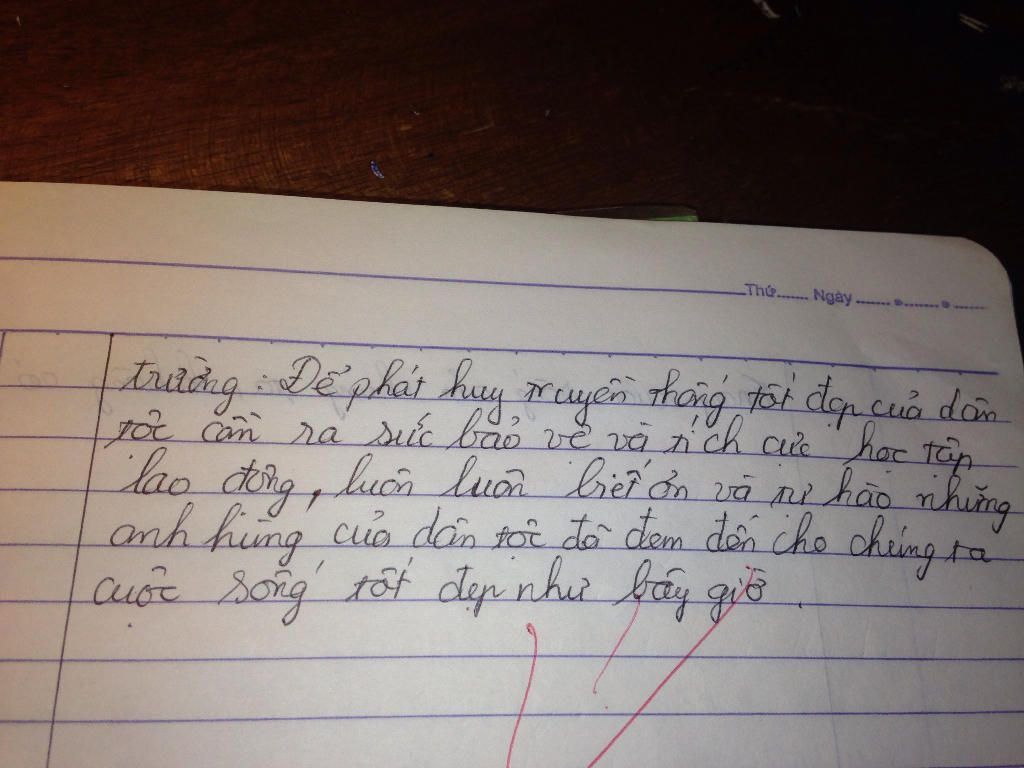 Thứ...... Ngày ...... ......
trường: Để phát huy truyền thống tốt đẹp của dân
tộc cần ra sức bảo vệ và tích cực học tập
lao động, luôn luôn biết ơn và tự hào những
anh hùng của dân tộc đã đem đến cho chúng ta
cuộc sống tốt đẹp như bây giờ.